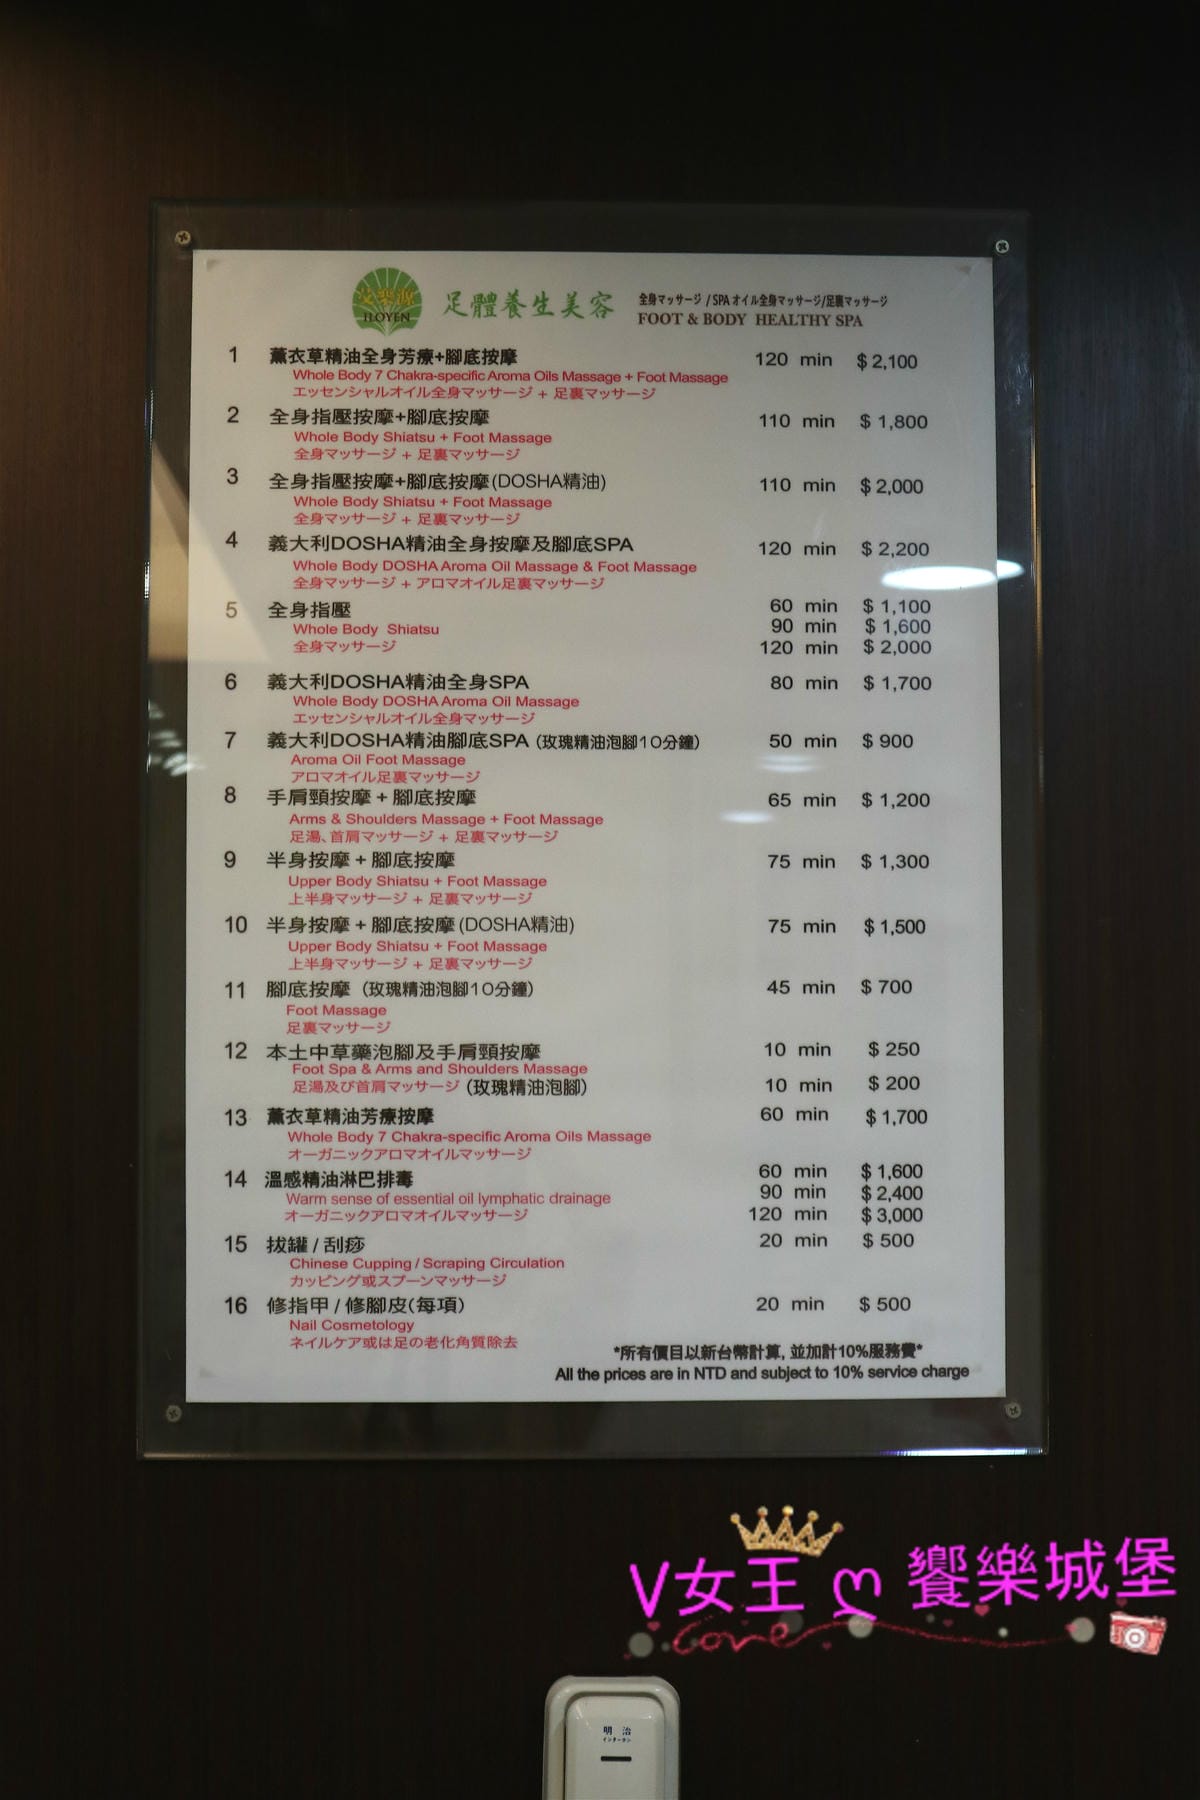 艾樂源
ILOYEN
足體養生美容
全身マッサージ / SPA オイル全身マッサージ/足裏マッサージ
FOOT & BODY HEALTHY SPA
1 薰衣草精油全身芳療+腳底按摩 120 min $ 2,100
Whole Body 7 Chakra-specific Aroma Oils Massage + Foot Massage
エッセンシャルオイル全身マッサージ + 足裏マッサージ
2 全身指壓按摩+腳底按摩 110 min $ 1,800
Whole Body Shiatsu + Foot Massage
全身マッサージ + 足裏マッサージ
3 全身指壓按摩+腳底按摩(DOSHA精油) 110 min $ 2,000
Whole Body Shiatsu + Foot Massage
全身マッサージ + 足裏マッサージ
4 義大利DOSHA精油全身按摩及腳底SPA 120 min $ 2,200
Whole Body DOSHA Aroma Oil Massage & Foot Massage
全身マッサージ + アロマオイル足裏マッサージ
5 全身指壓 60 min $ 1,100
Whole Body Shiatsu 90 min $ 1,600
全身マッサージ 120 min $ 2,000
6 義大利DOSHA精油全身SPA 80 min $ 1,700
Whole Body DOSHA Aroma Oil Massage
エッセンシャルオイル全身マッサージ
7 義大利DOSHA精油腳底SPA (玫瑰精油泡腳10分鐘) 50 min $ 900
Aroma Oil Foot Massage
アロマオイル足裏マッサージ
8 手肩頸按摩 + 腳底按摩 65 min $ 1,200
Arms & Shoulders Massage + Foot Massage
足湯、首肩マッサージ + 足裏マッサージ
9 半身按摩 + 腳底按摩 75 min $ 1,300
Upper Body Shiatsu + Foot Massage
上半身マッサージ + 足裏マッサージ
10 半身按摩 + 腳底按摩 (DOSHA精油) 75 min $ 1,500
Upper Body Shiatsu + Foot Massage
上半身マッサージ + 足裏マッサージ
11 腳底按摩 (玫瑰精油泡腳10分鐘) 45 min $ 700
Foot Massage
足裏マッサージ
12 本土中草藥泡腳及手肩頸按摩 10 min $ 250
Foot Spa & Arms and Shoulders Massage
足湯及び首肩マッサージ (玫瑰精油泡腳) 10 min $ 200
13 薰衣草精油芳療按摩 60 min $ 1,700
Whole Body 7 Chakra-specific Aroma Oils Massage
オーガニックアロマオイルマッサージ
14 溫感精油淋巴排毒 60 min $ 1,600
Warm sense of essential oil lymphatic drainage 90 min $ 2,400
オーガニックアロマオイルマッサージ 120 min $ 3,000
15 拔罐 / 刮痧 20 min $ 500
Chinese Cupping / Scraping Circulation
カッピング或スプーンマッサージ
16 修指甲 / 修腳皮(每項) 20 min $ 500
Nail Cosmetology
ネイルケア或は足の老化角質除去
*所有價目以新台幣計算, 並加計10%服務費*
All the prices are in NTD and subject to 10% service charge
V女王 ღ 饗樂城堡
Love
明治
インターホン